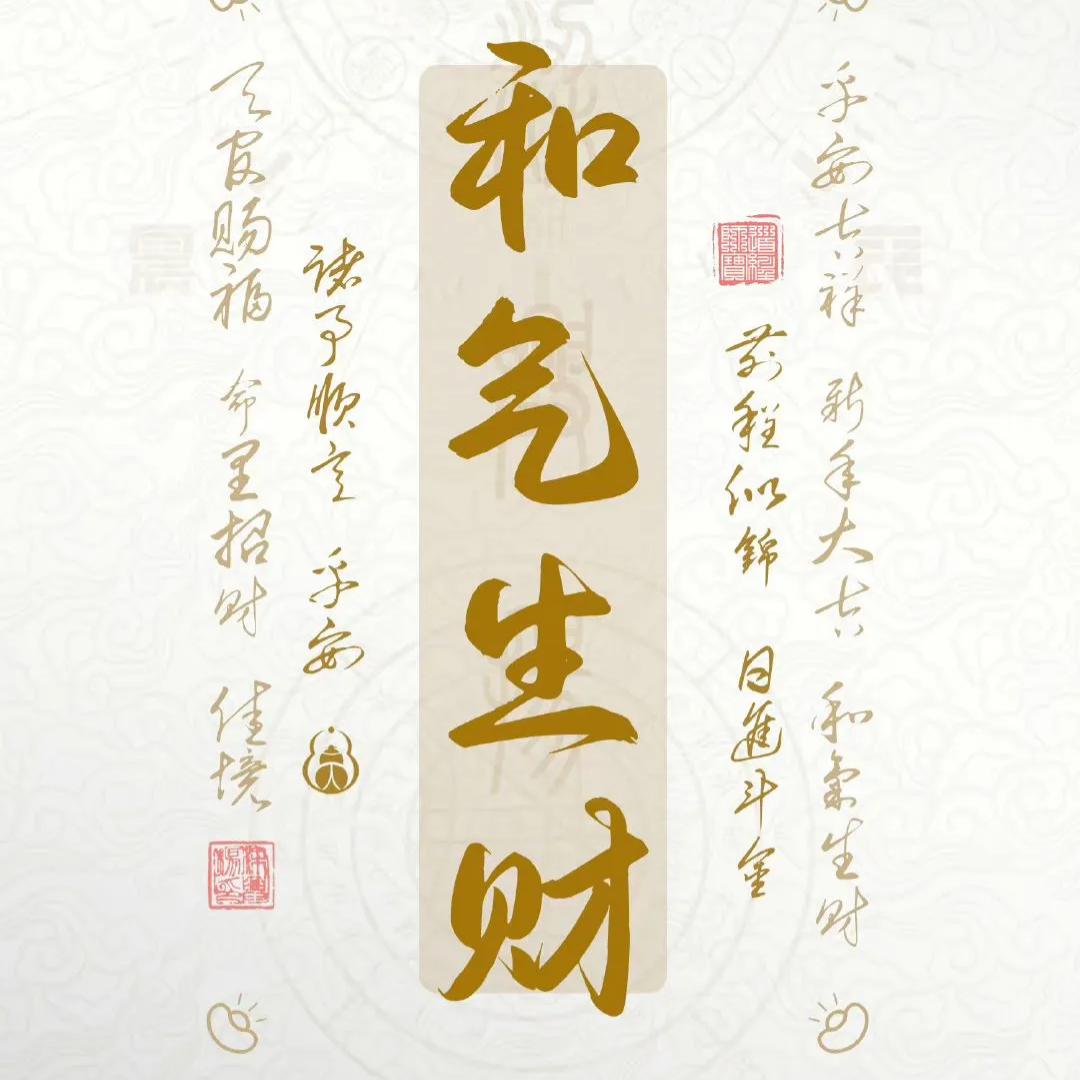 平安吉祥 新年大吉 和氣生财
前程似錦 日進斗金
和气生财
诸事顺意 平安
天官赐福 命里招财 佳境